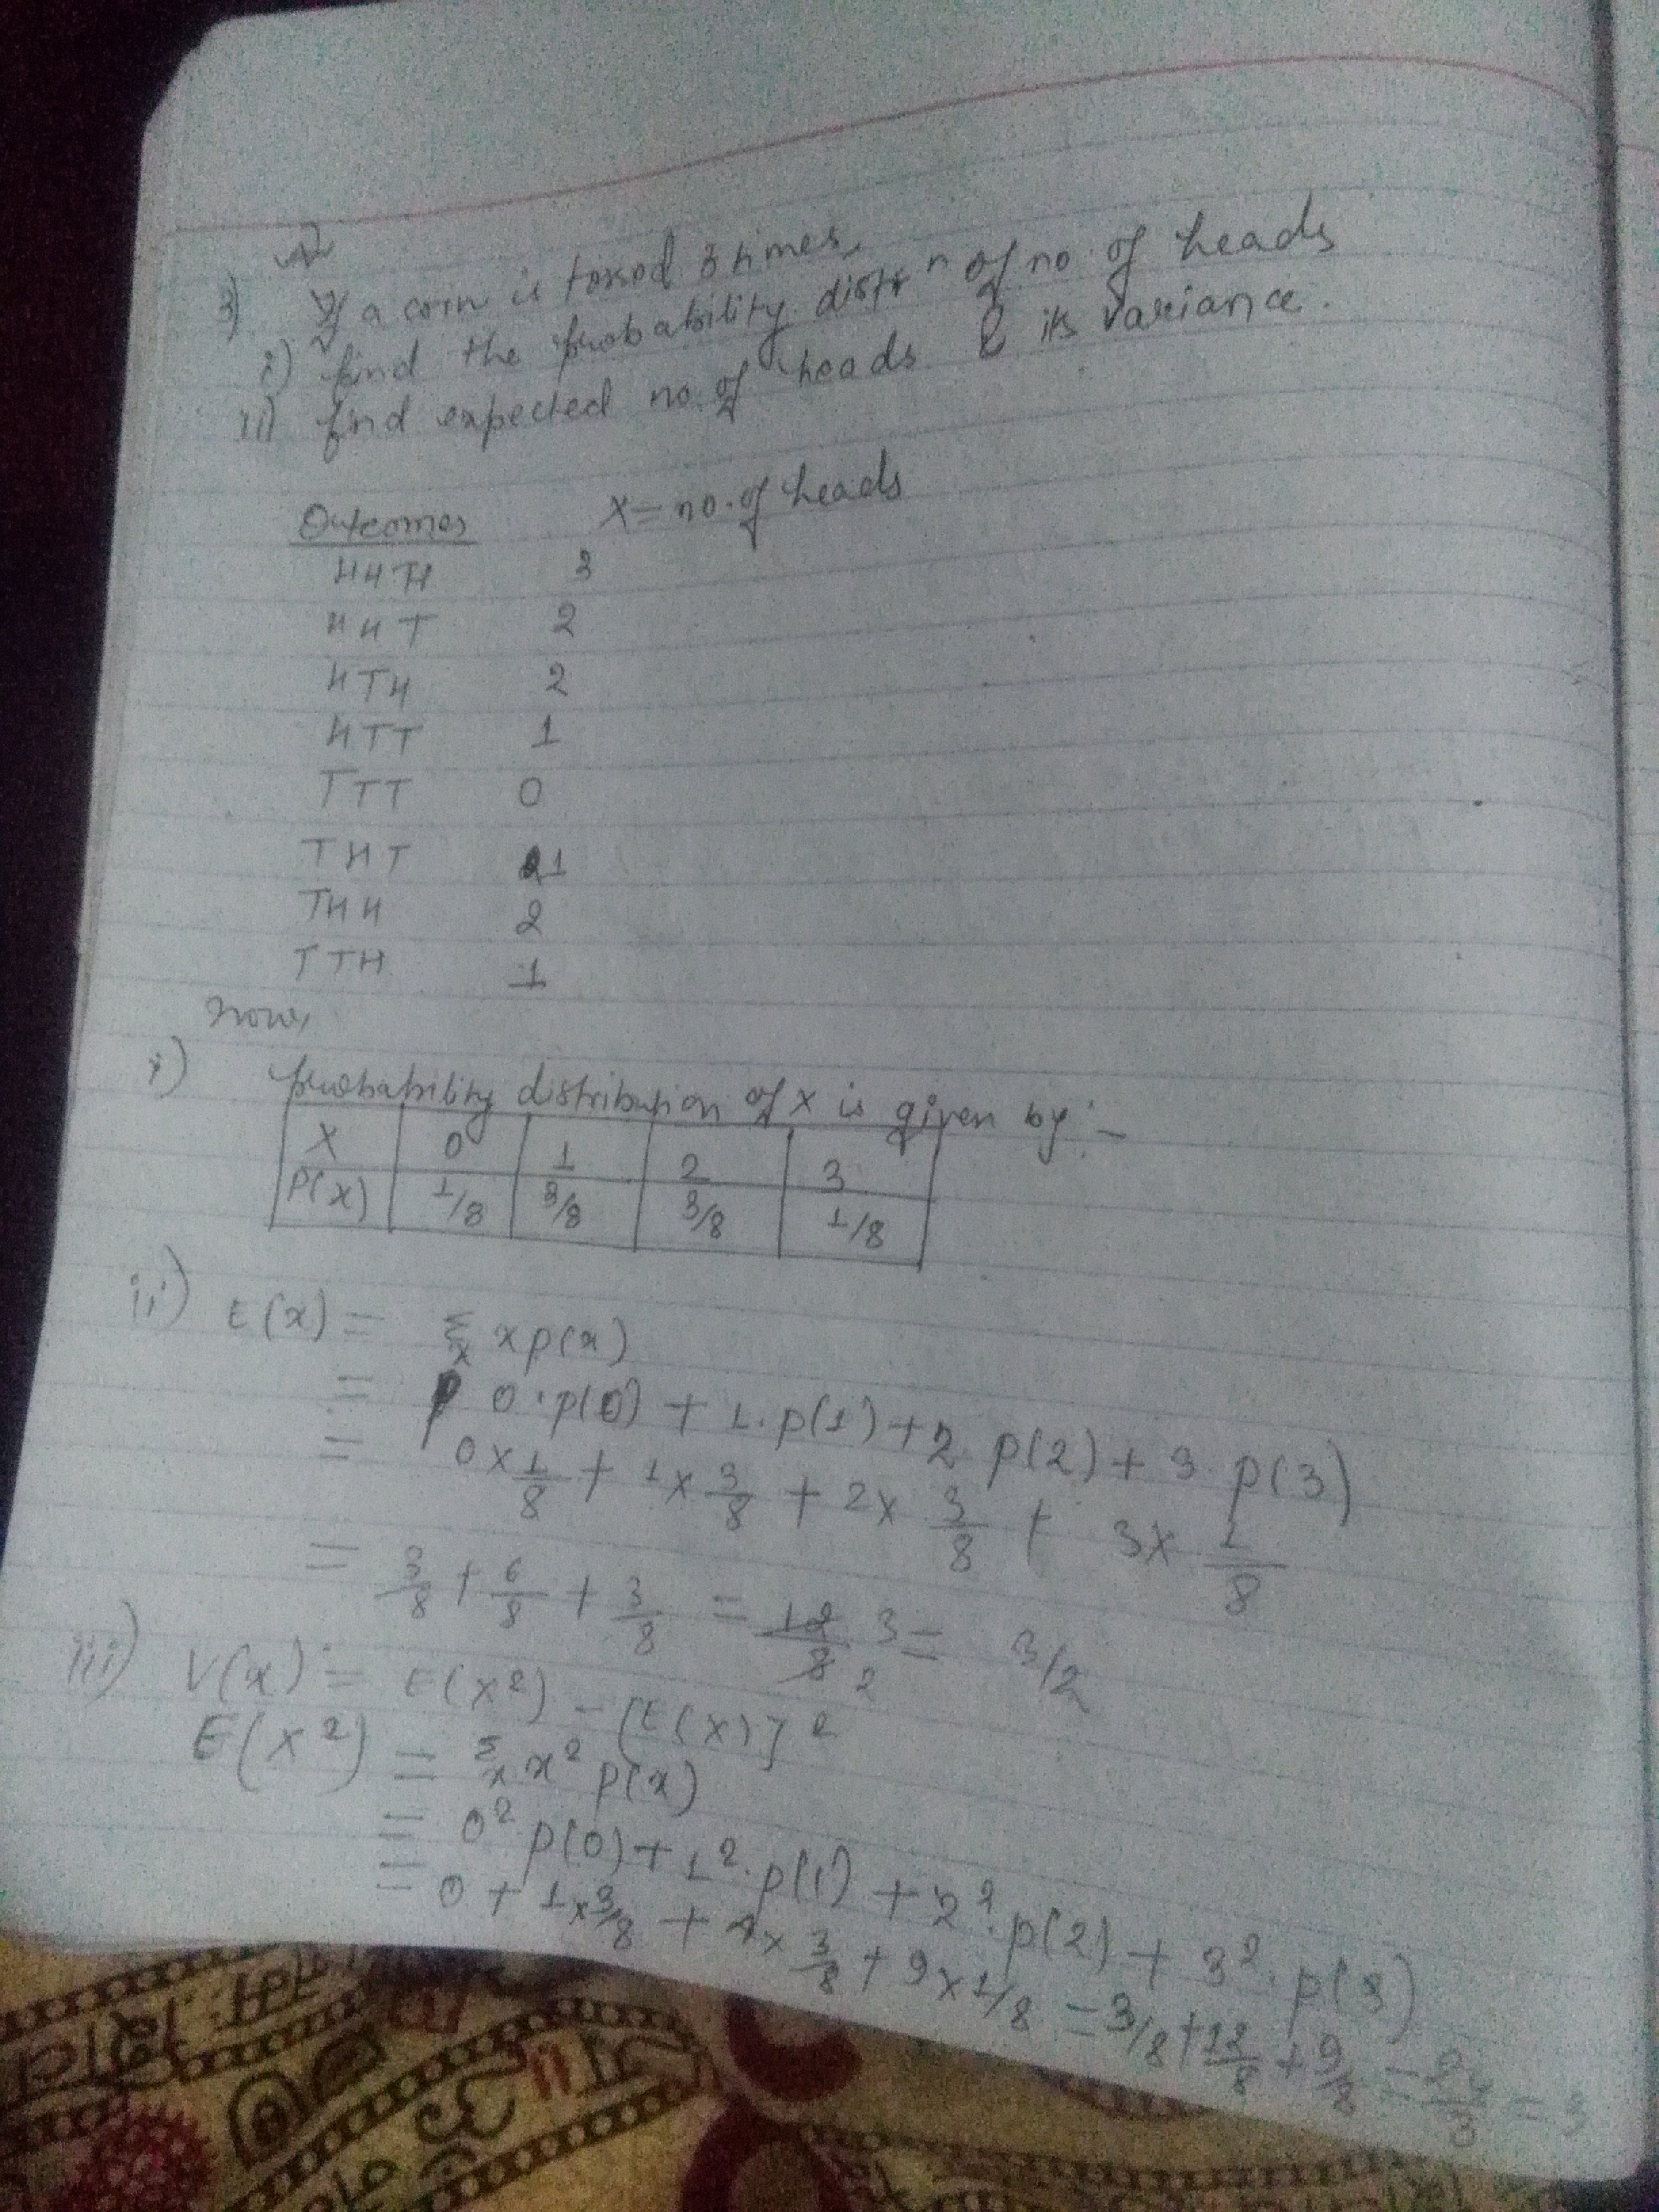 3) If a coin is tossed 3 times,
i) find the probability distrⁿ of no. of heads
ii) find expected no. of heads & its variance.
Outcomes X = no. of heads
HHH 3
HHT 2
HTH 2
HTT 1
TTT 0
THT 1
THH 2
TTH 1
Now,
i) probability distribution of X is given by :-
X 0 1 2 3
P(x) 1/8 3/8 3/8 1/8
ii) E(x) = Σx x p(x)
= 0·p(0) + 1·p(1) + 2·p(2) + 3·p(3)
= 0×1/8 + 1×3/8 + 2×3/8 + 3×1/8
= 3/8 + 6/8 + 3/8 = 12/8 3 2 = 3/2
iii) V(x) = E(X²) - [E(X)]²
E(X²) = Σx x² p(x)
= 0² p(0) + 1²·p(1) + 2²·p(2) + 3²·p(3)
= 0 + 1×3/8 + 4×3/8 + 9×1/8 = 3/8 + 12/8 + 9/8 = 24/3 = 3